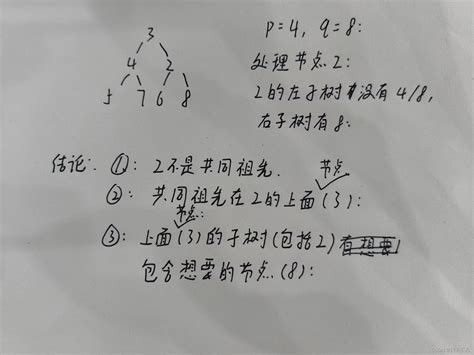 3
4 2
5 7 6 8
p=4, q=8:
处理节点2:
2的左子树没有4/8,
右子树有8:
结论: ①: 2不是共同祖先.
节点
②: 共同祖先在2的上面(3):
节点:
③: 上面(3)的子树(包括2)有想要
包含想要的节点(8):